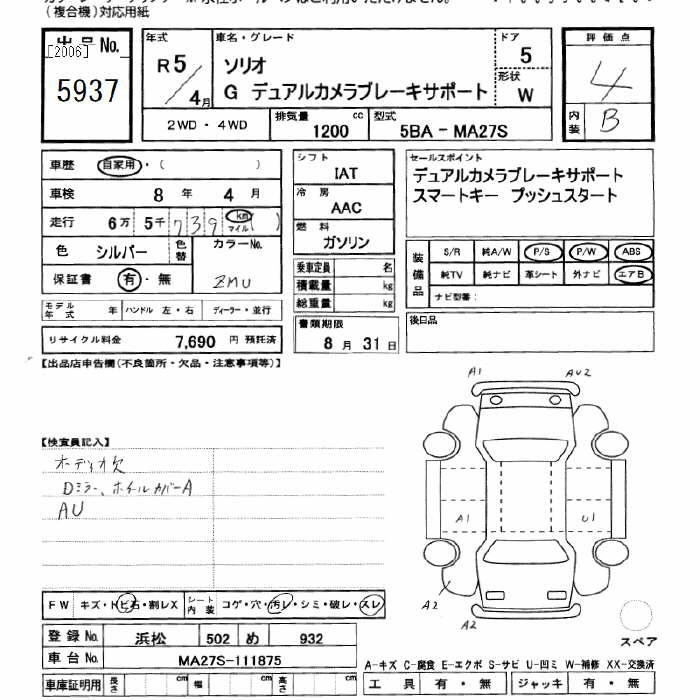 (複合機)対応用紙
出品No.
[2006]
5937
年式
R5/4月
車名・グレード
ソリオ
G デュアルカメラブレーキサポート
ドア
5
形状
W
2WD・4WD
排気量
1200 cc
型式
5BA-MA27S
評価点
4
内装
B
車歴
自家用・( )
車検
8年4月
走行
6万5千739km マイル( )
色
シルバー
色替
カラーNo.
ZMU
保証書
有・無
モデル年式
年
ハンドル 左・右
ディーラー・並行
リサイクル料金
7,690円 預託済
シフト
IAT
冷房
AAC
燃料
ガソリン
乗車定員 名
積載量 kg
総重量 kg
書類期限
8月31日
セールスポイント
デュアルカメラブレーキサポート
スマートキー プッシュスタート
装備品
S/R 純A/W P/S P/W ABS
純TV 純ナビ 革シート 外ナビ エアB
ナビ型番:
後日品
【出品店申告欄(不良箇所・欠品・注意事項等)】
【検査員記入】
オーディオ欠
Dミラー、ホイルカバーA
AU
A1
AU2
A1
U1
A2
A2
スペア
FW キズ・トビ石・割レX
シート内装 コゲ・穴・汚レ・シミ・破レ・スレ
登録No. 浜松 502 め 932
車台No. MA27S-111875
車庫証明用 長さ cm 幅 cm 高さ cm
A-キズ C-腐食 E-エクボ S-サビ U-凹ミ W-補修 XX-交換済
工具 有・無 ジャッキ 有・無